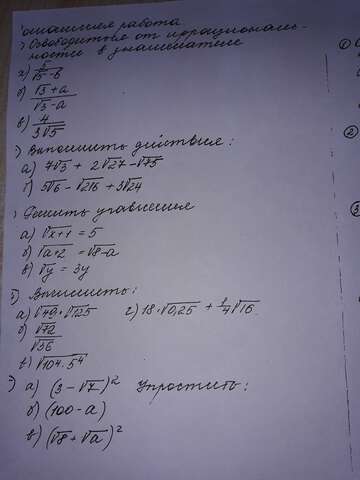 омашняя работа
) Освободиться от иррациональ-
ности в знаменателе
а) 5/(√5 - b)
б) (√3 + a)/(√3 - a)
в) 4/(3√5)
) Выполнить действия:
а) 7√3 + 2√27 - √75
б) 5√6 - √216 + 3√24
) Решить уравнения
а) √x+1 = 5
б) √a+2 = √8-a
в) √y = 3y
) Вычислить:
а) √49 · √125 г) 18 · √0,25 + 1/4√16
б) √72/√36
в) √10⁴ · 5⁴
) а) (3 - √7)² Упростить:
б) (100 - a)
в) (√8 + √a)²
①
②
③